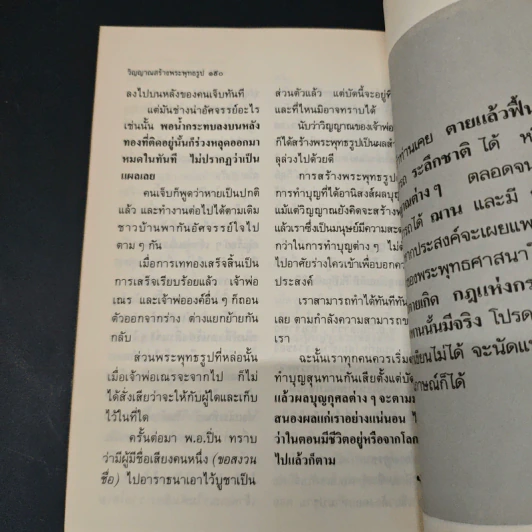 วิญญาณสร้างพระพุทธรูป ๑๕๐
ลงไปบนหลังของคนเจ็บทันที
แต่มันช่างน่าอัศจรรย์อะไร
เช่นนั้น พอน้ำกระทบลงบนหลัง
ทองที่ติดอยู่นั้นก็ร่วงหลุดออกมา
หมดในทันที ไม่ปรากฏว่าเป็น
แผลเลย
คนเจ็บก็พูดว่าหายเป็นปกติ
แล้ว และทำงานต่อไปได้ตามเดิม
ชาวบ้านพากันอัศจรรย์ใจไป
ตาม ๆ กัน
เมื่อการเททองเสร็จสิ้นเป็น
การเสร็จเรียบร้อยแล้ว เจ้าพ่อ
เณร และเจ้าพ่อองค์อื่น ๆ ก็ถอน
ตัวออกจากร่าง ต่างแยกย้ายกัน
กลับ
ส่วนพระพุทธรูปที่หล่อนั้น
เมื่อเจ้าพ่อเณรจะจากไป ก็ไม่
ได้สั่งเสียว่าจะให้กับผู้ใดและเก็บ
ไว้ในที่ใด
ครั้นต่อมา พ.อ.ปิ่น ทราบ
ว่ามีผู้มีชื่อเสียงคนหนึ่ง (ขอสงวน
ชื่อ) ไปอาราธนาเอาไว้บูชาเป็น
ส่วนตัวแล้ว แต่บัดนี้จะอยู่ที่
และที่ไหนมิอาจทราบได้
นับว่าวิญญาณของเจ้าพ่อ
ก็ได้สร้างพระพุทธรูปเป็นผลสำ
ลุล่วงไปด้วยดี
การสร้างพระพุทธรูป
การทำบุญที่ได้อานิสงส์ผลบุญ
แม้แต่วิญญาณยังคิดจะสร้างพ
แล้วเราซึ่งเป็นมนุษย์มีความสะ
กว่าในการทำบุญต่าง ๆ ไม่ต้
ไปอาศัยร่างใครเข้าเพื่อบอกคว
ประสงค์
เราสามารถทำได้ทันทีทัน
เลย ตามกำลังความสามารถข
เรา
ฉะนั้นเราทุกคนควรเริ่ม
ทำบุญสุนทานกันเสียตั้งแต่บัด
แล้วผลบุญกุศลต่าง ๆ จะตาม
สนองผลแก่เราอย่างแน่นอน ไ
ว่าในตอนมีชีวิตอยู่หรือจากโลก
ไปแล้วก็ตาม
ท่านเคย ตายแล้วฟื้น
ระลึกชาติ ได้ ห
ต่าง ๆ ตลอดจน
ได้ ฌาน และมี
ประสงค์จะเผยแพร
ของพระพุทธศาสนาใ
กฎแห่งกร
นั้นมีจริง โปรด
เขียนไม่ได้ จะนัดแน
ก็ได้